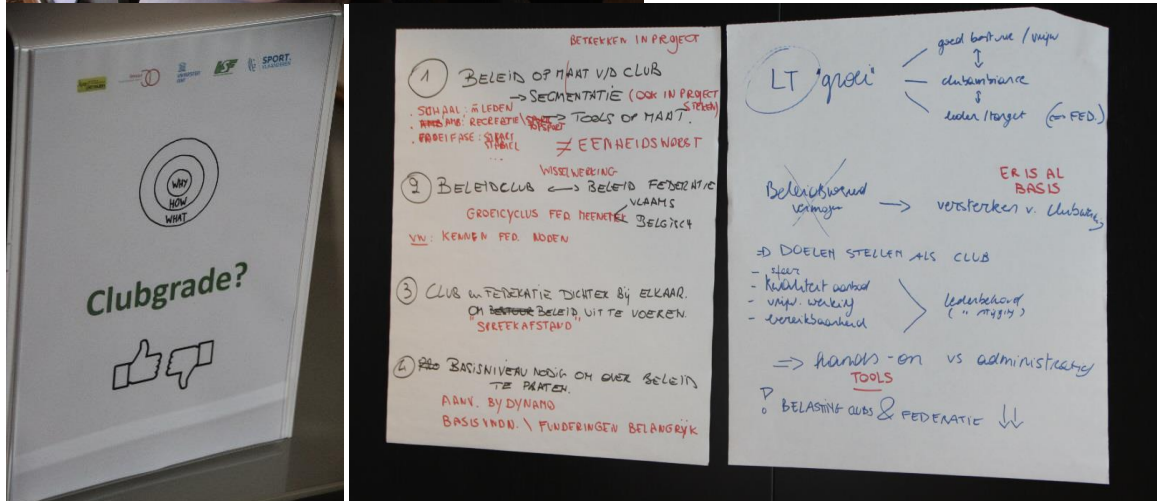 SPORT.
WHY
HOW
WHAT
Clubgrade?
BETREKKEN IN PROJECT
1 BELEID OP MAAT V/D CLUB
→ SEGMENTATIE (OOK IN PROJECT STEKEN)
. SCHAAL: # LEDEN
RECREATIE \ TOPSPORT → TOOLS OP MAAT.
START
STABIEL
...
≠ EENHEIDSWORST
WISSELWERKING
2 BELEIDCLUB ↔ BELEID FEDERATIE
GROEICYCLUS FED MEENEMEN
VLAAMS
BELGISCH
VW: KENNEN FED. NODEN
3 CLUB en FEDERATIE DICHTER BIJ ELKAAR.
OM BESTUUR BELEID UIT TE VOEREN.
"SPREEKAFSTAND"
4 BASISNIVEAU NODIG OM OVER BELEID
TE PRATEN.
AANV. BY DYNAMO
FUNDERINGEN BELANGRIJK
LT "groei"
goed bestuur / vrijw
clubambiance
leden/target (↔ FED.)
ER IS AL
BASIS
Beleidsvoerend
vermogen → versterken v. clubwerking
⇒ DOELEN STELLEN ALS CLUB
- sfeer
- kwaliteit aanbod
- vrijw. werking
- bereikbaarheid
ledenbehoud
⇒ hands-on vs administratief
TOOLS
! BELASTING CLUBS & FEDERATIE ↓↓